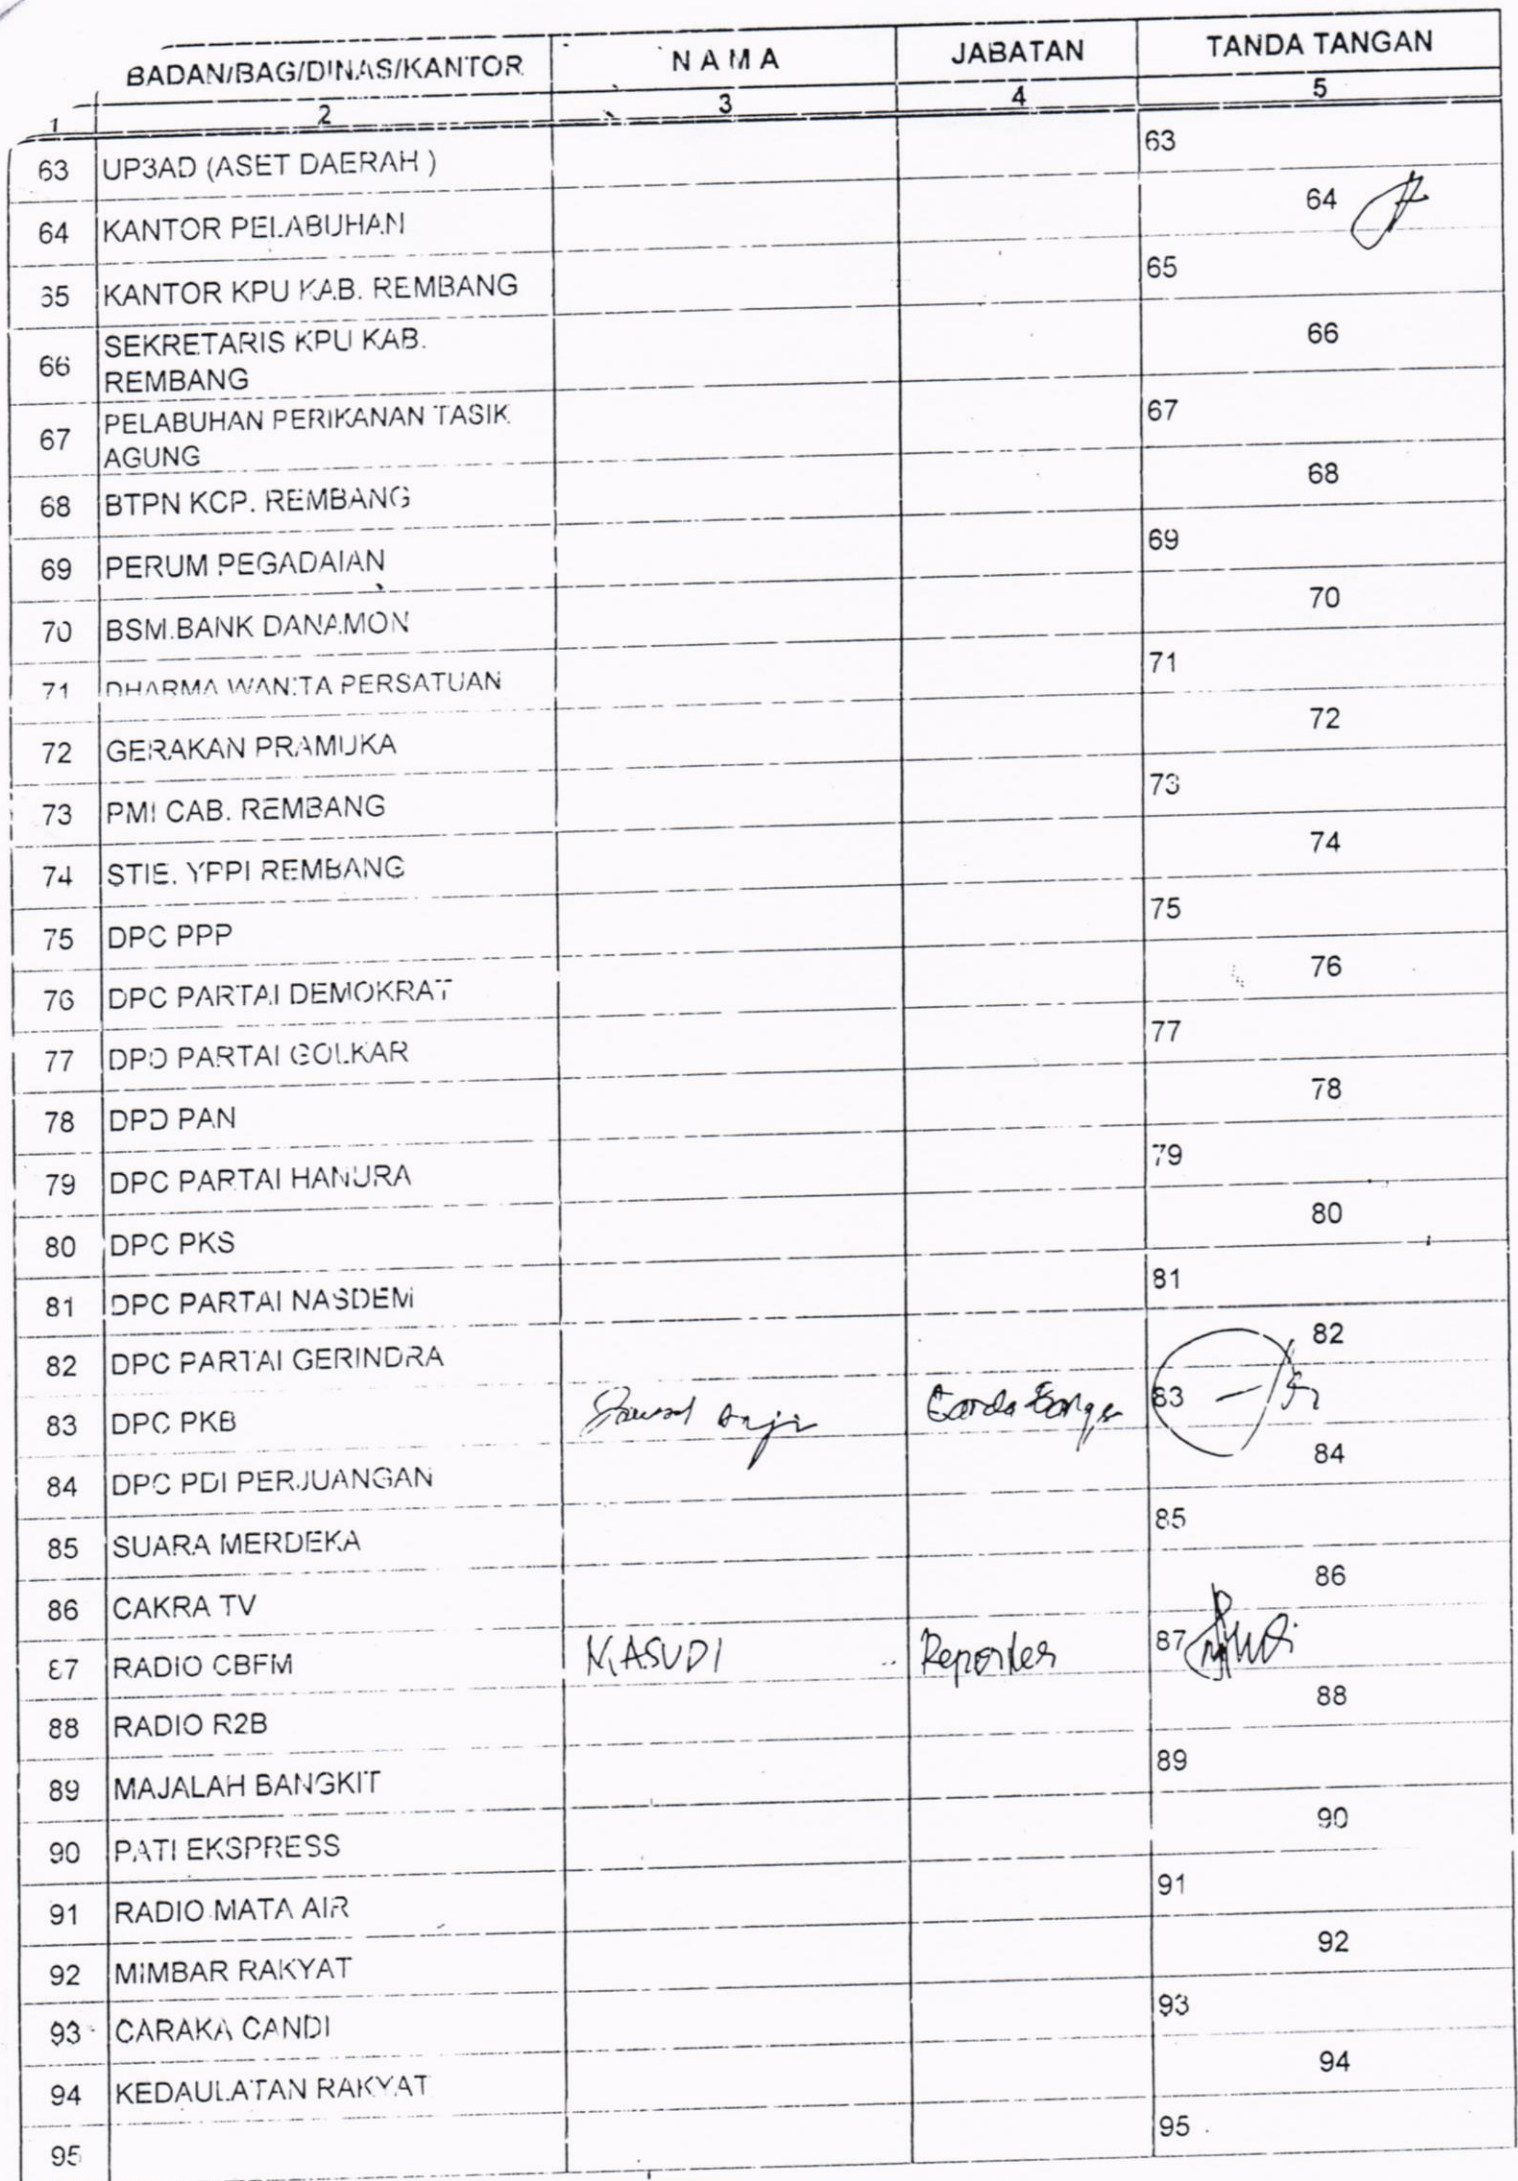 BADAN/BAG/DINAS/KANTOR N A M A JABATAN TANDA TANGAN
1 2 3 4 5
63 UP3AD (ASET DAERAH ) 63
64 KANTOR PELABUHAN 64
65 KANTOR KPU KAB. REMBANG 65
66 SEKRETARIS KPU KAB. 66
REMBANG
67 PELABUHAN PERIKANAN TASIK 67
AGUNG
68 BTPN KCP. REMBANG 68
69 PERUM PEGADAIAN 69
70 BSM.BANK DANAMON 70
71 DHARMA WANITA PERSATUAN 71
72 GERAKAN PRAMUKA 72
73 PMI CAB. REMBANG 73
74 STIE. YPPI REMBANG 74
75 DPC PPP 75
76 DPC PARTAI DEMOKRAT 76
77 DPD PARTAI GOLKAR 77
78 DPD PAN 78
79 DPC PARTAI HANURA 79
80 DPC PKS 80
81 DPC PARTAI NASDEM 81
82 DPC PARTAI GERINDRA 82
83 DPC PKB 83
84 DPC PDI PERJUANGAN 84
85 SUARA MERDEKA 85
86 CAKRA TV 86
87 RADIO CBFM MASUDI Reporter 87
88 RADIO R2B 88
89 MAJALAH BANGKIT 89
90 PATI EKSPRESS 90
91 RADIO MATA AIR 91
92 MIMBAR RAKYAT 92
93 CARAKA CANDI 93
94 KEDAULATAN RAKYAT 94
95 95